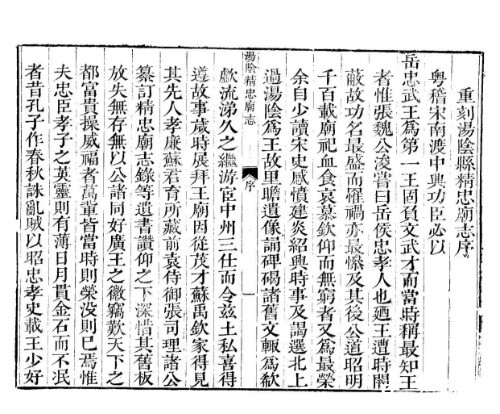 重刻湯陰縣精忠廟志序
粵稽宋南渡中興功臣必以
岳忠武王為第一王固負文武才而當時稱最知王
者惟張魏公浚嘗曰岳侯忠孝人也廼王遭時闇
蔽故功名最盛而惟禍亦最慘及其後公道昭明
千百載廟祀血食哀慕欽仰而無窮者又為最榮
余自少讀宋史感憤建炎紹興時事及謁選北上
過湯陰為王故里瞻遺像誦碑碣諸舊文輒為欷
湯陰精忠廟志
序
一
歔流涕久之繼游宦中州三仕而令茲土私喜得
遵故事歲時展拜王廟因從茂才蘇禹欽家得見
其先人孝廉蘇君育所藏前袁侍御張司理諸公
纂訂精忠廟志錄等遺書讚仰之下深惜其舊板
放失無存無以公諸同好廣王之徽竊歎天下之
都富貴操威福者萬輩皆當時則榮沒則已焉惟
夫忠臣孝子之英靈則有薄日月貫金石而不泯
者昔孔子作春秋誅亂賊以昭忠孝史載王少好